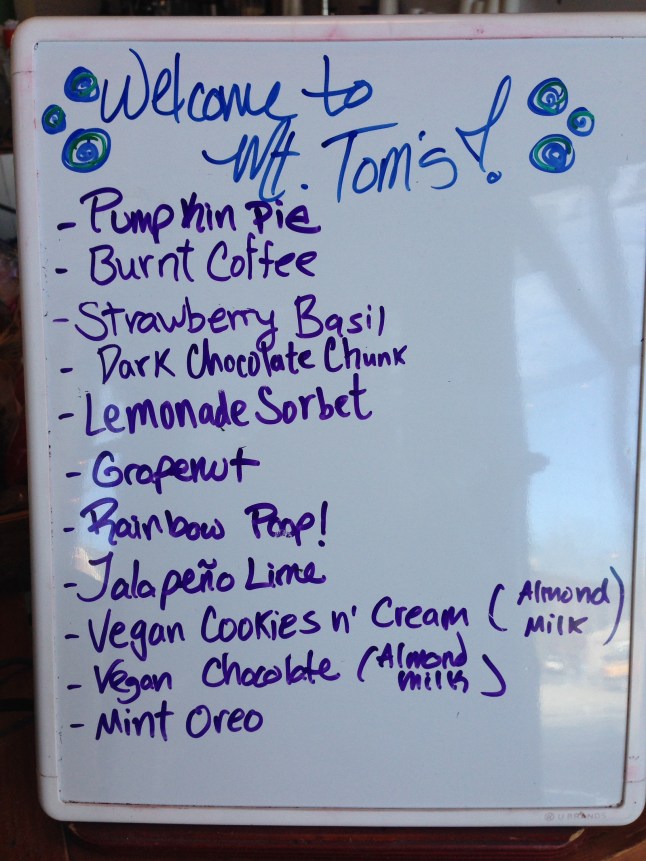 Welcome to
Mt. Tom's!
- Pumpkin Pie
- Burnt Coffee
- Strawberry Basil
- Dark Chocolate Chunk
- Lemonade Sorbet
- Grapenut
- Rainbow Poop!
- Jalapeño Lime
- Vegan Cookies n' Cream (Almond Milk)
- Vegan Chocolate (Almond Milk)
- Mint Oreo
U BRANDS